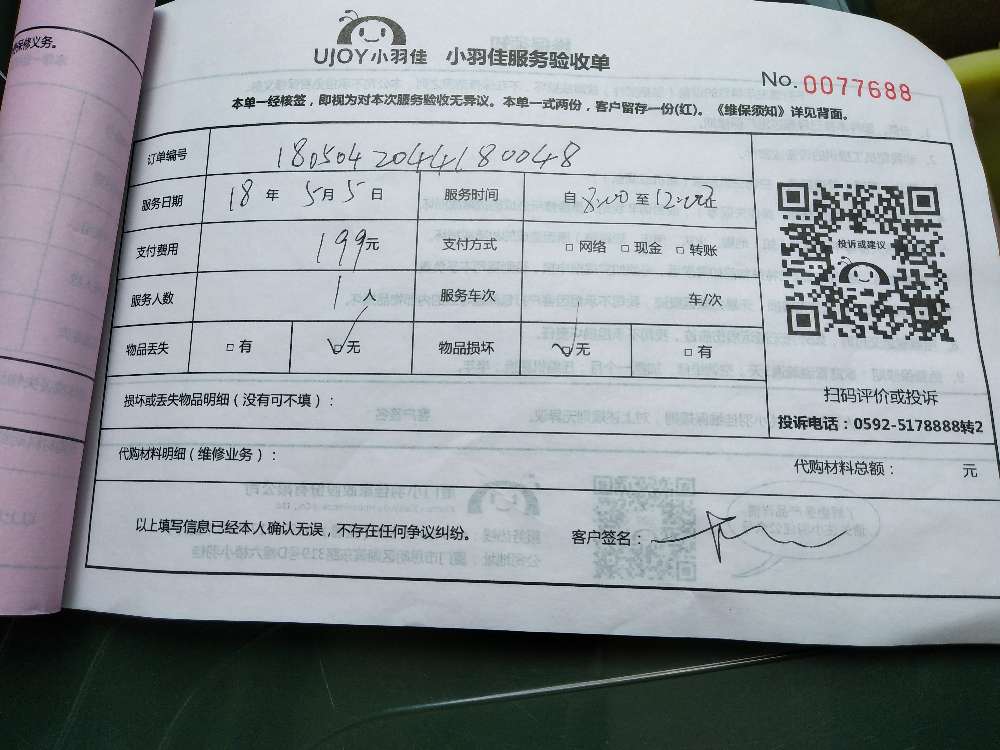 保修义务。
UJOY小羽佳 小羽佳服务验收单
No. 0077688
本单一经核签，即视为对本次服务验收无异议。本单一式两份，客户留存一份(红)。《维保须知》详见背面。
订单编号 1805042044180048
服务日期 18 年 5月 5 日 服务时间 自 8:00 至 12:00止
支付费用 199元 支付方式 □ 网络 □ 现金 □ 转账
服务人数 1 人 服务车次 车/次
物品丢失 □ 有 □ 无 物品损坏 □ 无 □ 有
投诉或建议
扫码评价或投诉
投诉电话：0592-5178888转2
损坏或丢失物品明细（没有可不填）：
代购材料明细（维修业务）： 代购材料总额： 元
以上填写信息已经本人确认无误，不存在任何争议纠纷。 客户签名：